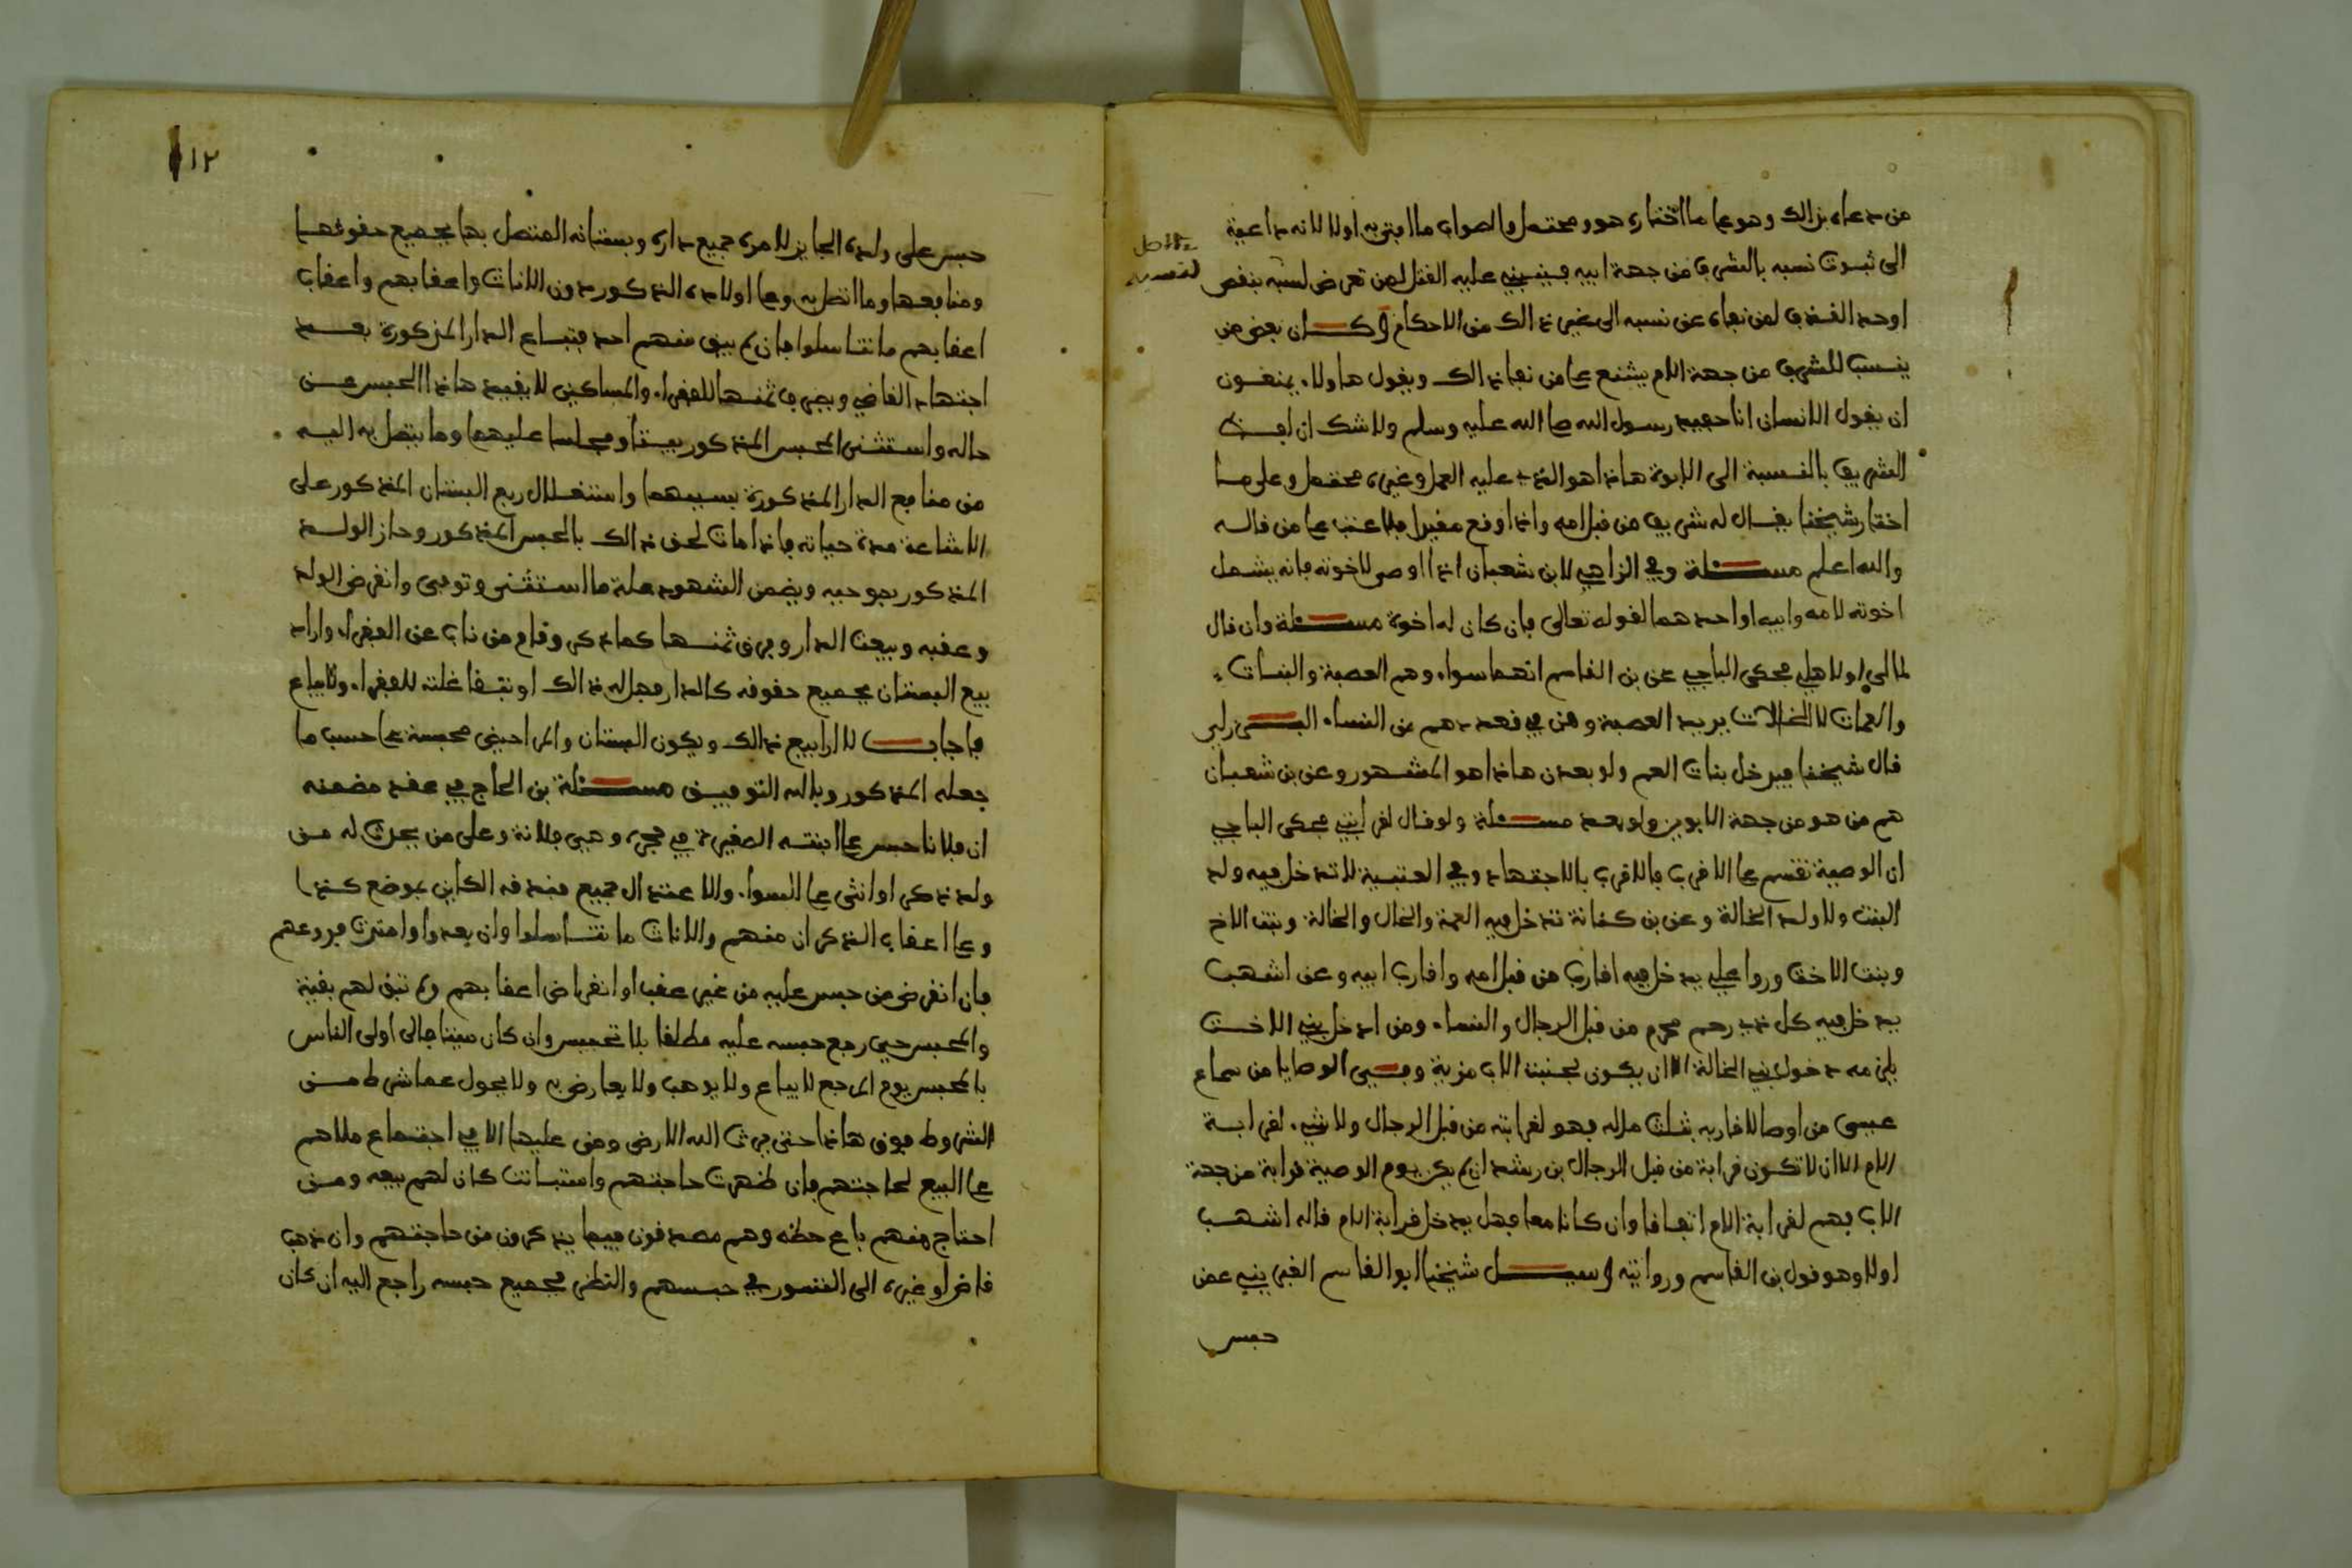 من دعاه بذالك وهو على ما اختاره هو ومحتمل والصواب ما افتى به اولا لانه داعية
الى ثبوت نسبه بالشرف من جهة ابيه فينبني عليه القتل لمن تعرض لسبه بنقص
اوحد القذف لمن نفاه عن نسبه الى غير ذالك من الاحكام وكان بعض من
ينسب للشرف من جهة الام يشنع على من نفا ذالك ويقول هاولاء يمنعون
ان يقول الانسان انا حفيد رسول الله صلى الله عليه وسلم ولا شك ان لفظ
الشريف بالنسبة الى الابوة هاذا هو الذي عليه العمل وغيره محتمل وعلى ما
اختار شيخنا يقال له شريف من قبل امه واذا وقع مقيدا فلا عتب على من قاله
والله اعلم مسئلة وفي الزاهي لابن شعبان اذا اوصى لاخوته فانه يشمل
اخوته لامه وابيه او احدهما لقوله تعالى فان كان له اخوة مسئلة وان قال
لمالي اولاهلي فحكى الباجي عن بن القاسم انهما سواء وهم العصبة والبنات
والعمات لا الخالات يريد العصبة ومن في قعددهم من النساء البرزلي
قال شيخنا فيدخل بنات العم ولو بعدن هاذا هو المشهور وعن بن شعبان
هم من هو من جهة الابوين ولو بعد مسئلة ولو قال لقرابتي فحكى الباجي
ان الوصية تقسم على الاقرب فالاقرب بالاجتهاد وفي العتبية لا تدخل فيه ولد
البنت ولا ولد الخالة وعن بن كنانة تدخل فيه العمة والخال والخالة وبنت الاخ
وبنت الاخت وروا علي يدخل فيه اقارب من قبل امه واقارب ابيه وعن اشهب
يدخل فيه كل ذي رحم محرم من قبل الرجال والنساء ومن ادخل بني الاخت
يلزمه دخول بني الخالة الا ان يكون لجنبة الاب مزية وفي الوصايا من سماع
عيسى من اوصا لاقاربه بثلث ماله فهو لقرابته من قبل الرجال ولا شيء لقرابة
الام الا ان لا تكون قرابة من قبل الرجال بن رشد ان لم يكن يوم الوصية قرابة من جهة
الاب فهم لقرابة الام اتفاقا وان كانا معا فهل يدخل قرابة الام قاله اشهب
اولا وهو قول بن القاسم وروايته وسيل شيخنا ابو القاسم الغبريني عمن
حبس
١٢
حبس على ولده الجايز الامره جميع داره وبستانه المتصل بها بجميع حقوقهما
ومنافعها وما اتصل به وعلى اولاده الذكور دون الاناث واعقابهم واعقاب
اعقابهم ما تناسلوا فان لم يبق منهم احد فتباع الدار المذكورة بعد
اجتهاد القاضي ويصرف ثمنها للفقراء والمساكين لا بقيد هاذا الحبس عن
حاله واستثنى المحبس المذكور بيتا ومجلسا عليهما وما يتصل به اليه
من منافع الدار المذكورة بسببهما واستغلال ربع البستان المذكور على
الاشاعة مدة حياته فاذا مات لحق ذالك بالحبس المذكور وحاز الولد
المذكور بموجبه ويضمن الشهود علة ما استثنى وتوفى وانقرض الولد
وعقبه وبيعت الدار وفرق ثمنها كما ذكر وقام من ناب عن الفقراء واراد
بيع البستان بجميع حقوقه كالدار فهل له ذالك او تبقا غلته للفقراء ولا يباع
فاجاب لا ارا بيع ذالك ويكون البستان والمراحيض محبسة على حسب ما
جعله المذكور وبالله التوفيق مسئلة بن الحاج في عقد مضمنه
ان فلانا حبس على ابنته الصغيرة في حجره وهي فلانة وعلى من يحدث له من
ولد ذكر او انثى على السواء والاعتدال جميع فندقه الكاين بموضع كذا
وعلى اعقاب الذكران منهم والاناث ما تناسلوا وان بعدوا وامتدت فروعهم
فان انقرض من حبس عليه من غير عقب او انقراض اعقابهم ولم تبق لهم بقية
والمحبس حي رجع حبسه عليه مطلقا بلا تحبيس وان كان ميتا فالى اولى الناس
بالمحبس يوم المرجع لا يباع ولا يوهب ولا يعارض به ولا يحول عما شرط من
الشروط فوق هاذا حتى يرث الله الارض ومن عليها الا في اجتماع ملاهم
على البيع لحاجتهم فان ظهرت حاجتهم واستبانت كان لهم بيعه ومن
احتاج منهم باع حظه وهم مصدقون فيما يذكرون من حاجتهم وان ذهب
قاض او غيره الى التسور في حبسهم والنظر فجميع حبسه راجع اليه ان كان